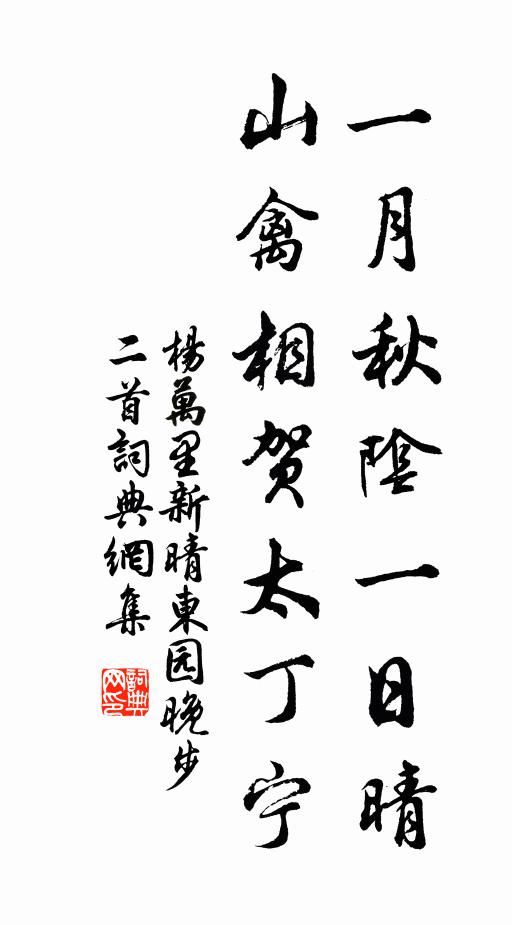 一月秋陰一日晴
山禽相贺太丁宁
楊萬里新晴東园晚步
二首詞典網集
詞典网印